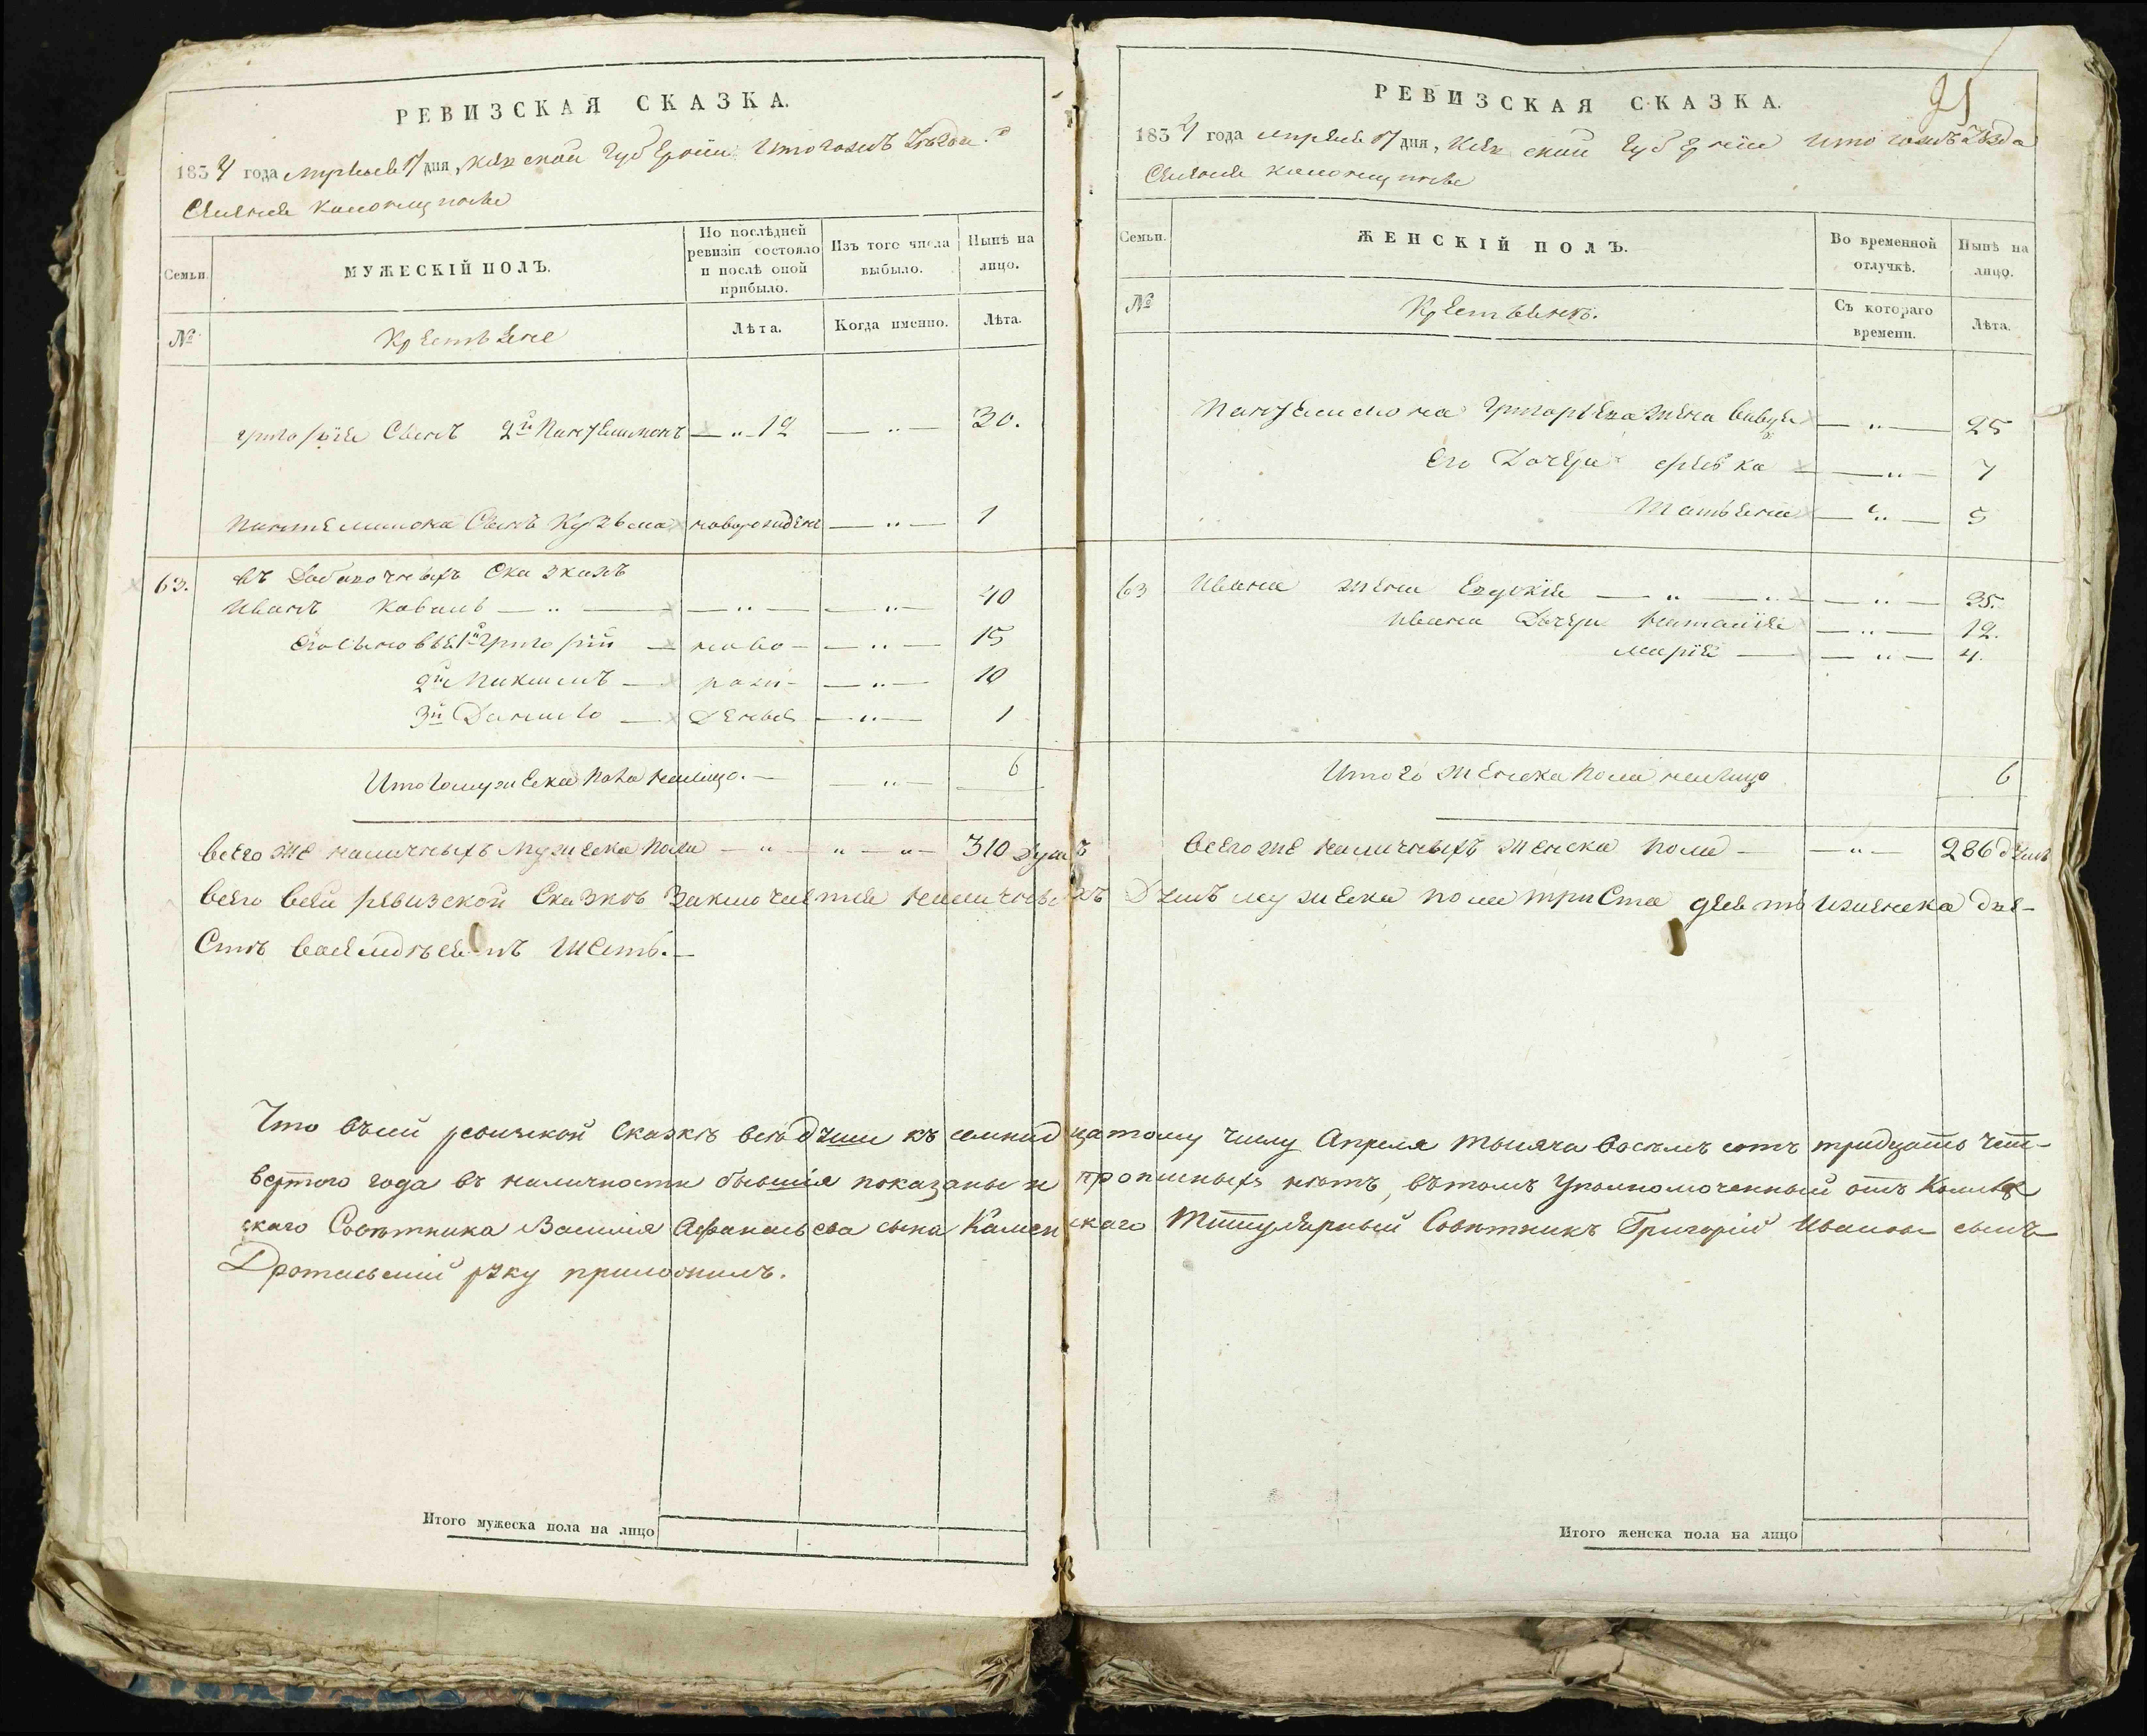 РЕВИЗСКАЯ СКАЗКА.
1834 года Апреля 17 дня, Кіевской губерніи Уезда
Селения
Семьи.
МУЖЕСКІЙ ПОЛЪ.
По послѣдней ревизіи состояло и послѣ оной прибыло.
Изъ того числа выбыло.
Нынѣ на лицо.
№
Крестьяне
Лѣта.
Когда именно.
Лѣта.
Григорія Сынъ 2й Пантелимонъ — " 12 — " — 30.
Пантелимона Сынъ Кузьма новорожденъ — " — 1
63. въ Добавочныхъ Сказкахъ
Иванъ Коваль — " — — " — — " — 40
Его сыновья 1й Григорій — ново- — " — 15
2й — рож- — " — 10
3й Данило — денные — " — 1
Итого мужеска пола налицо. — — " — 6
Всего же наличныхъ мужеска пола — " — " — " — 310 душъ
РЕВИЗСКАЯ СКАЗКА.
95
1834 года Апреля 17 дня, Кіевской Губерніи Уезда
Селения
Семьи.
ЖЕНСКІЙ ПОЛЪ.
Во временной отлучкѣ.
Нынѣ на лицо.
№
Крестьянъ.
Съ котораго времени.
Лѣта.
Пантелимона Григорьева жена — " — 25
Его Дочери — " — 7
Татьяна — " — 5
63 Ивана жена Евдокія — " — " — — " — 35.
Ивана Дочери Наталія — " — 12.
Марія — — " — 4.
Итого женска пола налицо 6
Всего же наличныхъ женска пола — — " — 286 душъ
Всего в сей ревизской Сказкѣ заключается наличныхъ душъ мужеска пола триста десять и женска двѣ-
стѣ восемдесятъ шесть. —
Что въ сей ревизской сказкѣ все души къ семнадцатому числу Апреля тысяча восемь сотъ тридцать чет-
вертого года въ наличности бывшія показаны и прописныхъ нѣтъ, въ томъ Уполномоченный отъ
скаго Совѣтника Василія Афанасьева сына Каменскаго Титулярный Совѣтникъ Григорій Ивановъ сынъ
руку приложилъ.
Итого мужеска пола на лицо
Итого женска пола на лицо